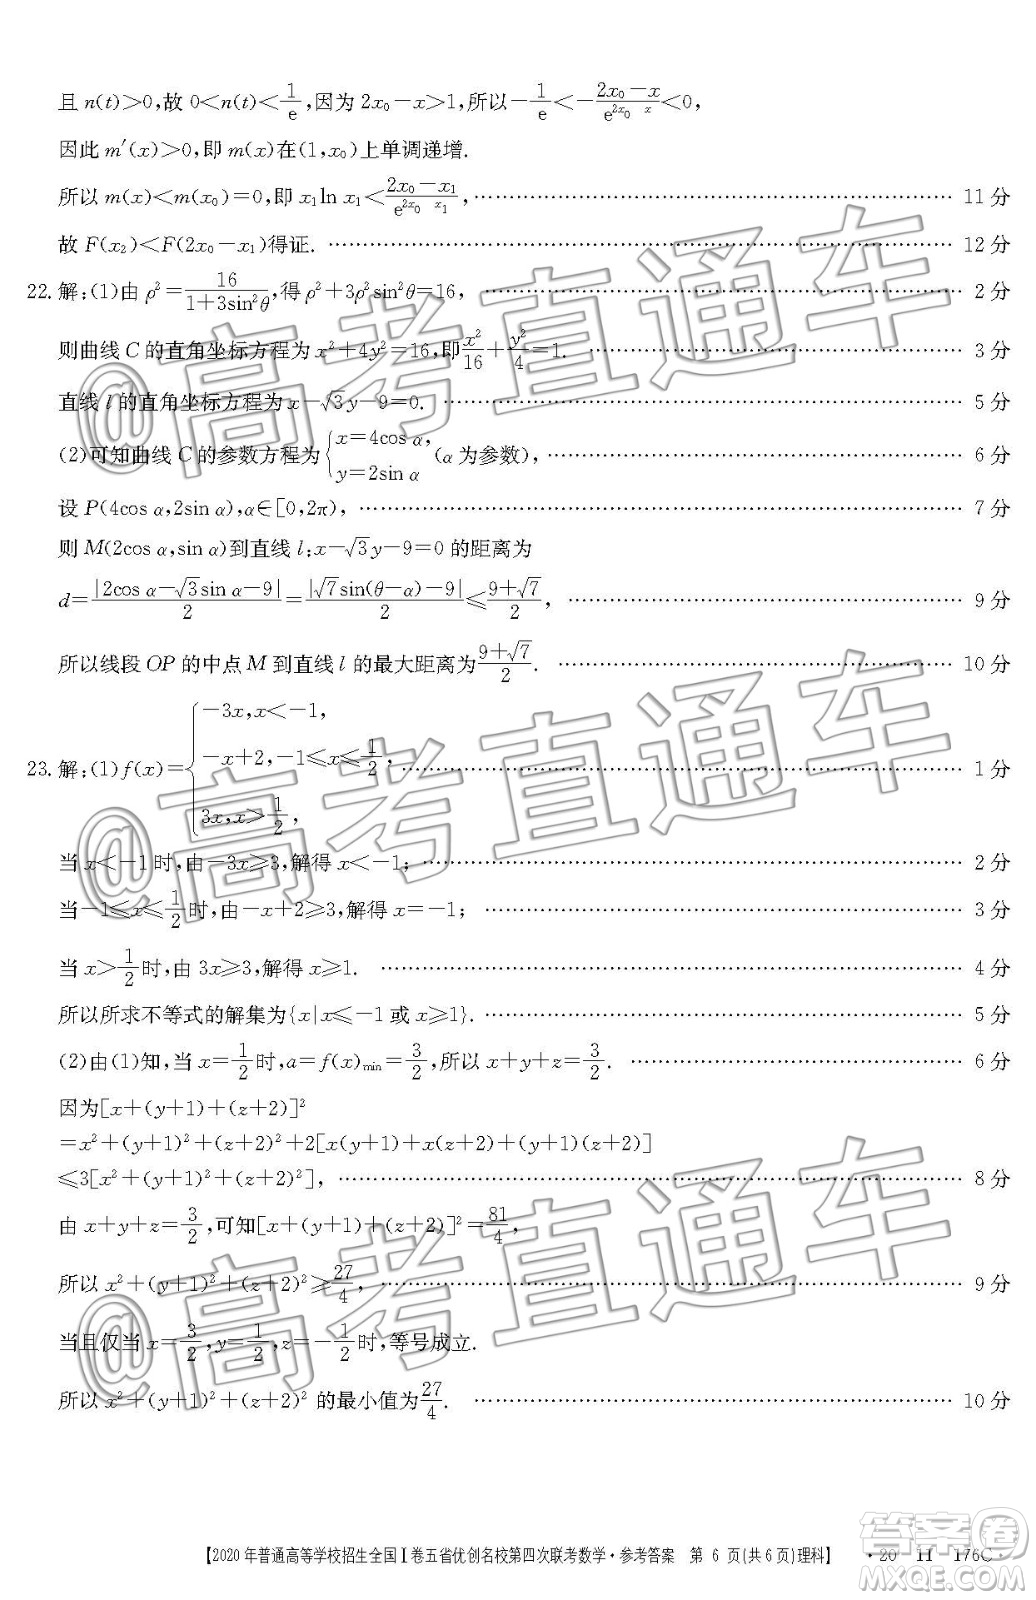 且 n(t)>0,故 0<n(t)<1/e,因为 2x₀-x>1,所以-1/e<-(2x₀-x)/e^(2x₀ x)<0,
因此 m′(x)>0,即 m(x)在(1,x₀)上单调递增.
所以 m(x)<m(x₀)=0,即 x₁ln x₁<(2x₀-x₁)/e^(2x₀ x₁), …… 11 分
故 F(x₂)<F(2x₀-x₁)得证. …… 12 分
22. 解:(1)由 ρ²=16/(1+3sin²θ),得 ρ²+3ρ²sin²θ=16, …… 2 分
则曲线 C 的直角坐标方程为 x²+4y²=16,即x²/16+y²/4=1. …… 3 分
直线 l 的直角坐标方程为 x-√3y-9=0. …… 5 分
(2)可知曲线 C 的参数方程为{x=4cos α, y=2sin α (α 为参数), …… 6 分
设 P(4cos α,2sin α),α∈[0,2π), …… 7 分
则 M(2cos α,sin α)到直线 l:x-√3y-9=0 的距离为
d=|2cos α-√3sin α-9|/2=|√7sin(θ-α)-9|/2≤(9+√7)/2, …… 9 分
所以线段 OP 的中点 M 到直线 l 的最大距离为(9+√7)/2. …… 10 分
23. 解:(1)f(x)={-3x,x<-1, -x+2,-1≤x≤1/2, 3x,x>1/2, …… 1 分
当 x<-1 时,由-3x≥3,解得 x<-1; …… 2 分
当-1≤x≤1/2时,由-x+2≥3,解得 x=-1; …… 3 分
当 x>1/2时,由 3x≥3,解得 x≥1. …… 4 分
所以所求不等式的解集为{x|x≤-1 或 x≥1}. …… 5 分
(2)由(1)知,当 x=1/2时,a=f(x)min=3/2,所以 x+y+z=3/2. …… 6 分
因为[x+(y+1)+(z+2)]²
=x²+(y+1)²+(z+2)²+2[x(y+1)+x(z+2)+(y+1)(z+2)]
≤3[x²+(y+1)²+(z+2)²], …… 8 分
由 x+y+z=3/2,可知[x+(y+1)+(z+2)]²=81/4,
所以 x²+(y+1)²+(z+2)²≥27/4, …… 9 分
当且仅当 x=3/2,y=1/2,z=-1/2时,等号成立.
所以 x²+(y+1)²+(z+2)² 的最小值为27/4. …… 10 分
【2020 年普通高等学校招生全国Ⅰ卷五省优创名校第四次联考数学·参考答案 第 6 页(共 6 页)理科】 ·20 11 176C·
@高考直通车
@高考直通车
@高考直通车
答案圈
MXQE.COM